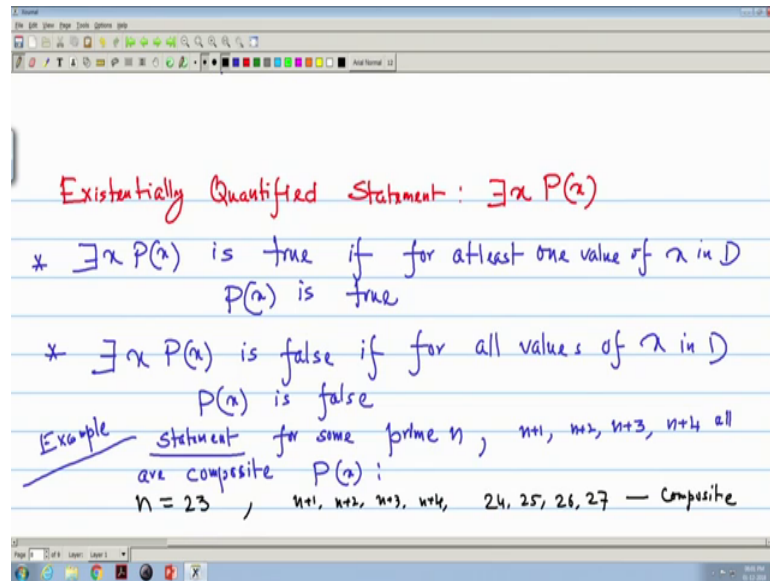 Journal
File Edit View Page Tools Options Help
Arial Normal 12
Existentially Quantified Statement : ∃x P(x)
* ∃x P(x) is true if for atleast one value of x in D
P(x) is true
* ∃x P(x) is false if for all values of x in D
P(x) is false
Example statement for some prime n, n+1, n+2, n+3, n+4 all
are composite P(x) :
n = 23 , n+1, n+2, n+3, n+4, 24, 25, 26, 27 — composite
Page 8 of 8 Layer: Layer 1